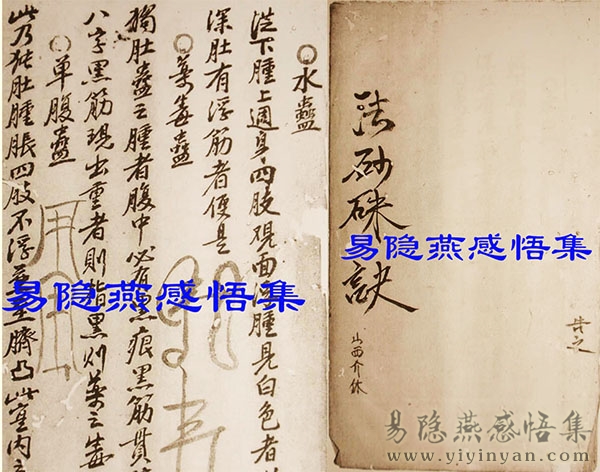 法砂硃訣
山西介休
水蠱
從下腫上週身四肢現面浮腫見白色者
深肚有浮筋者便是
藥毒蠱
獨肚蠱之腫者腹中必有黑痕黑筋貫
八字黑筋現出重者則皆黑則藥之毒
单腹蠱
此乃独肚腫脹四肢不浮甚至臍凸此室内
易隐燕感悟集
易隐燕感悟集
易隐燕感悟集
www.yiyinyan.com